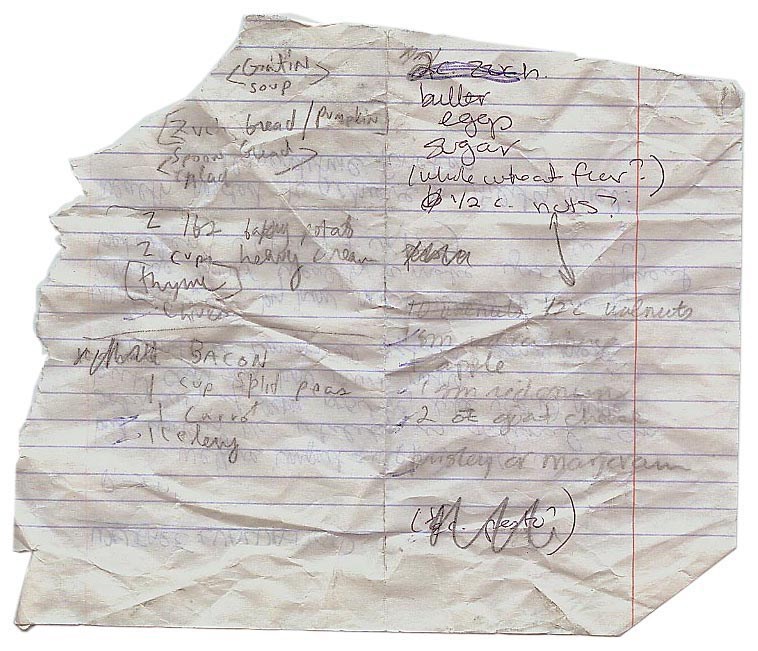 Gratin
soup
Zuch bread / Pumpkin
Spoon bread
salad
2 lbs baking potato
2 cups heavy cream
(thyme)
BACON
1 cup split peas
1 carrot
1 celery
2c zuch.
butter
eggs
sugar
(whole wheat flour?)
1/2 c. nuts?
1/2 c walnuts
apple
1 m red onion
2 oz goat cheese
parsley or marjoram
pesto?)